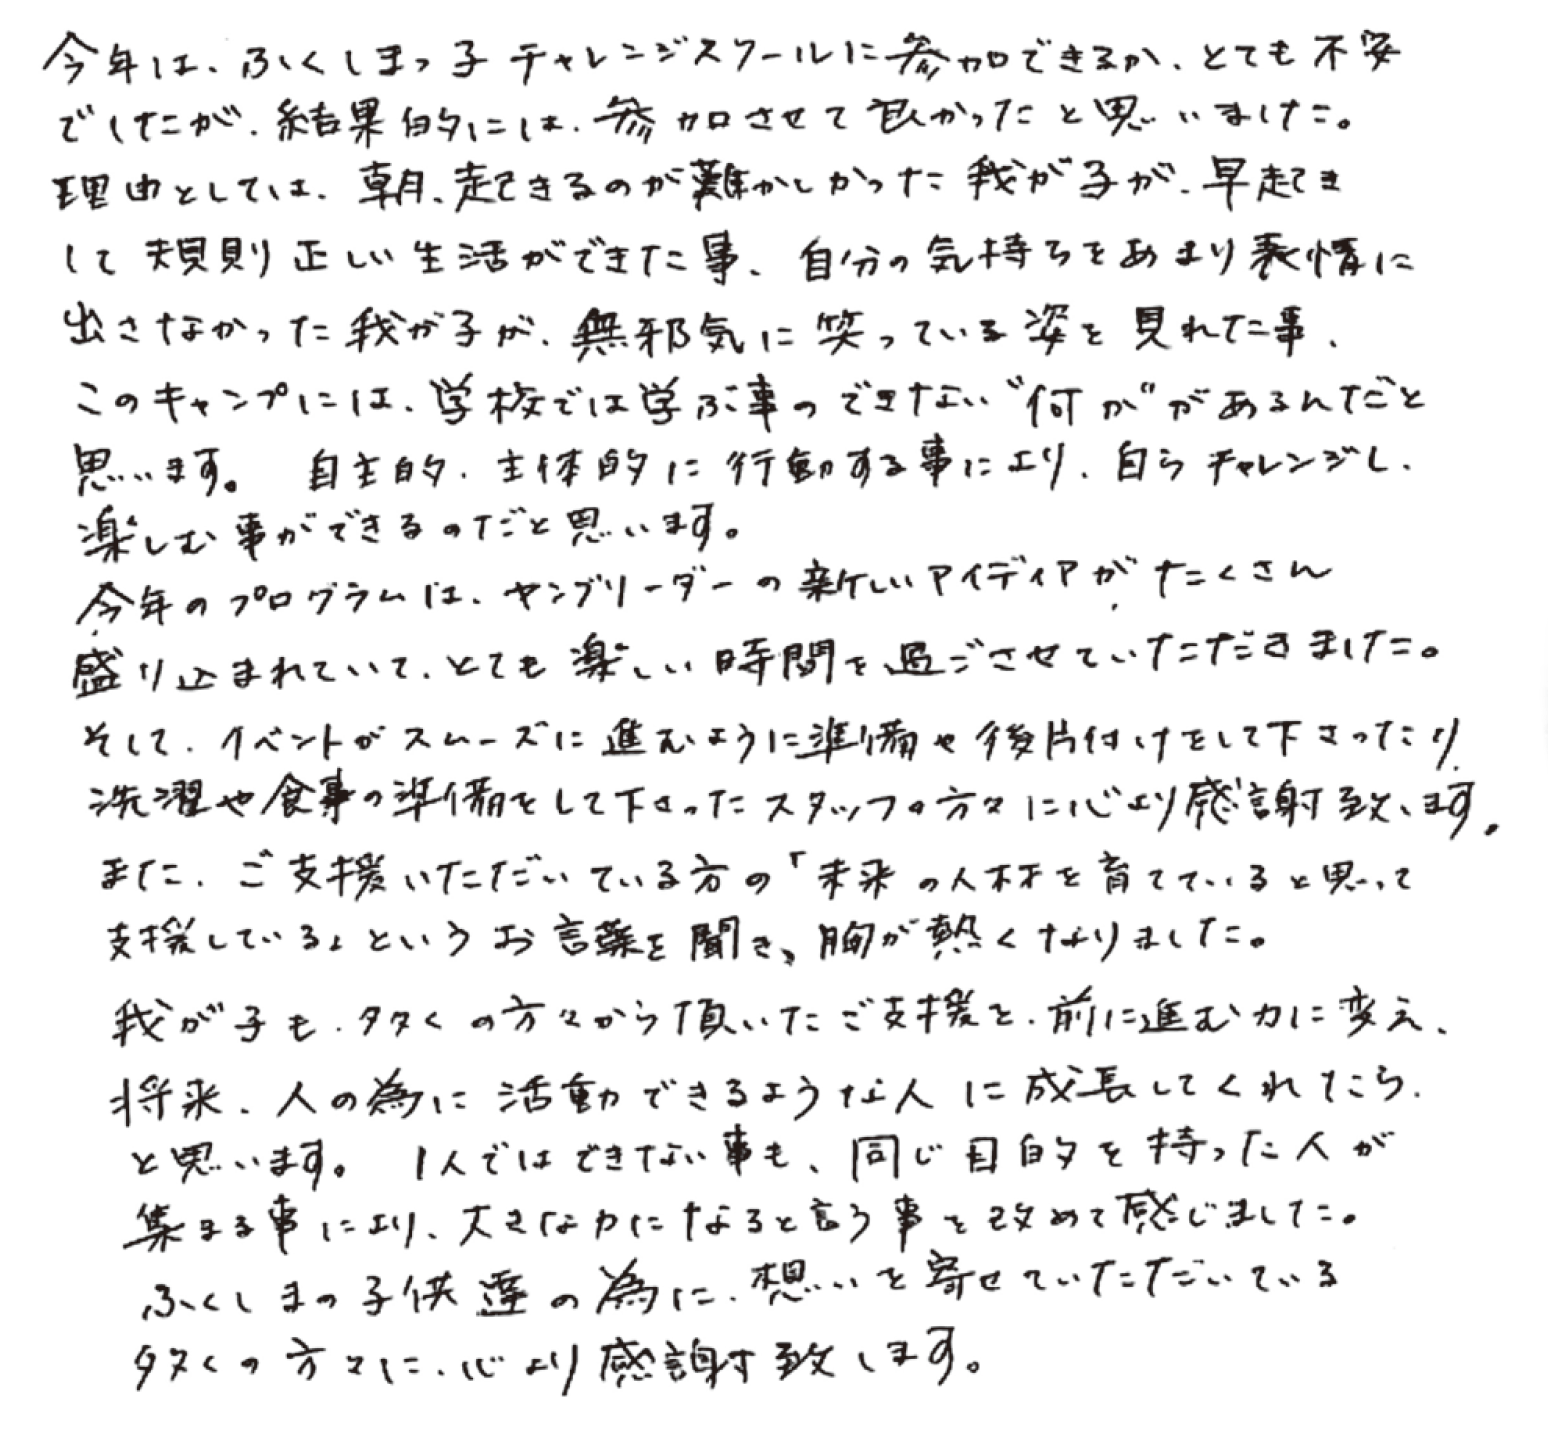 今年は、ふくしまっ子チャレンジスクールに参加できるか、とても不安
でしたが、結果的には、参加させて良かったと思いました。
理由としては、朝、起きるのが難かしかった我が子が、早起き
して規則正しい生活ができた事、自分の気持ちをあまり表情に
出さなかった我が子が、無邪気に笑っている姿を見れた事、
このキャンプには、学校では学ぶ事のできない“何か”があるんだと
思います。 自主的、主体的に行動する事により、自らチャレンジし、
楽しむ事ができるのだと思います。
今年のプログラムは、ヤングリーダーの新しいアイディアがたくさん
盛り込まれていて、とても楽しい時間を過ごさせていただきました。
そして、イベントがスムーズに進むように準備や後片付けをして下さったり、
洗濯や食事の準備をして下さったスタッフの方々に心より感謝致します。
また、ご支援いただいている方の「未来の人材を育てていると思って
支援している」というお言葉を聞き、胸が熱くなりました。
我が子も、多くの方々から頂いたご支援を、前に進む力に変え、
将来、人の為に活動できるような人に成長してくれたら、
と思います。 1人ではできない事も、同じ目的を持った人が
集まる事により、大きな力になると言う事を改めて感じました。
ふくしまの子供達の為に、想いを寄せていただいている
多くの方々に、心より感謝致します。